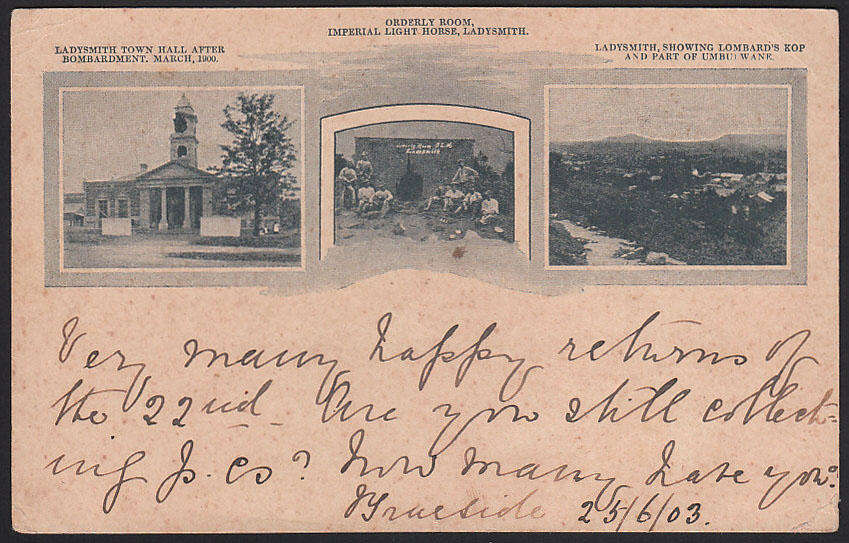 ORDERLY ROOM,
IMPERIAL LIGHT HORSE, LADYSMITH.
LADYSMITH TOWN HALL AFTER
BOMBARDMENT. MARCH, 1900.
LADYSMITH, SHOWING LOMBARD'S KOP
AND PART OF UMBULWANE.
Orderly Room I.L.H.
Ladysmith
Very many happy returns of
the 22nd. Are you still collect-
ing p. cs? How many have you?
25/6/03.